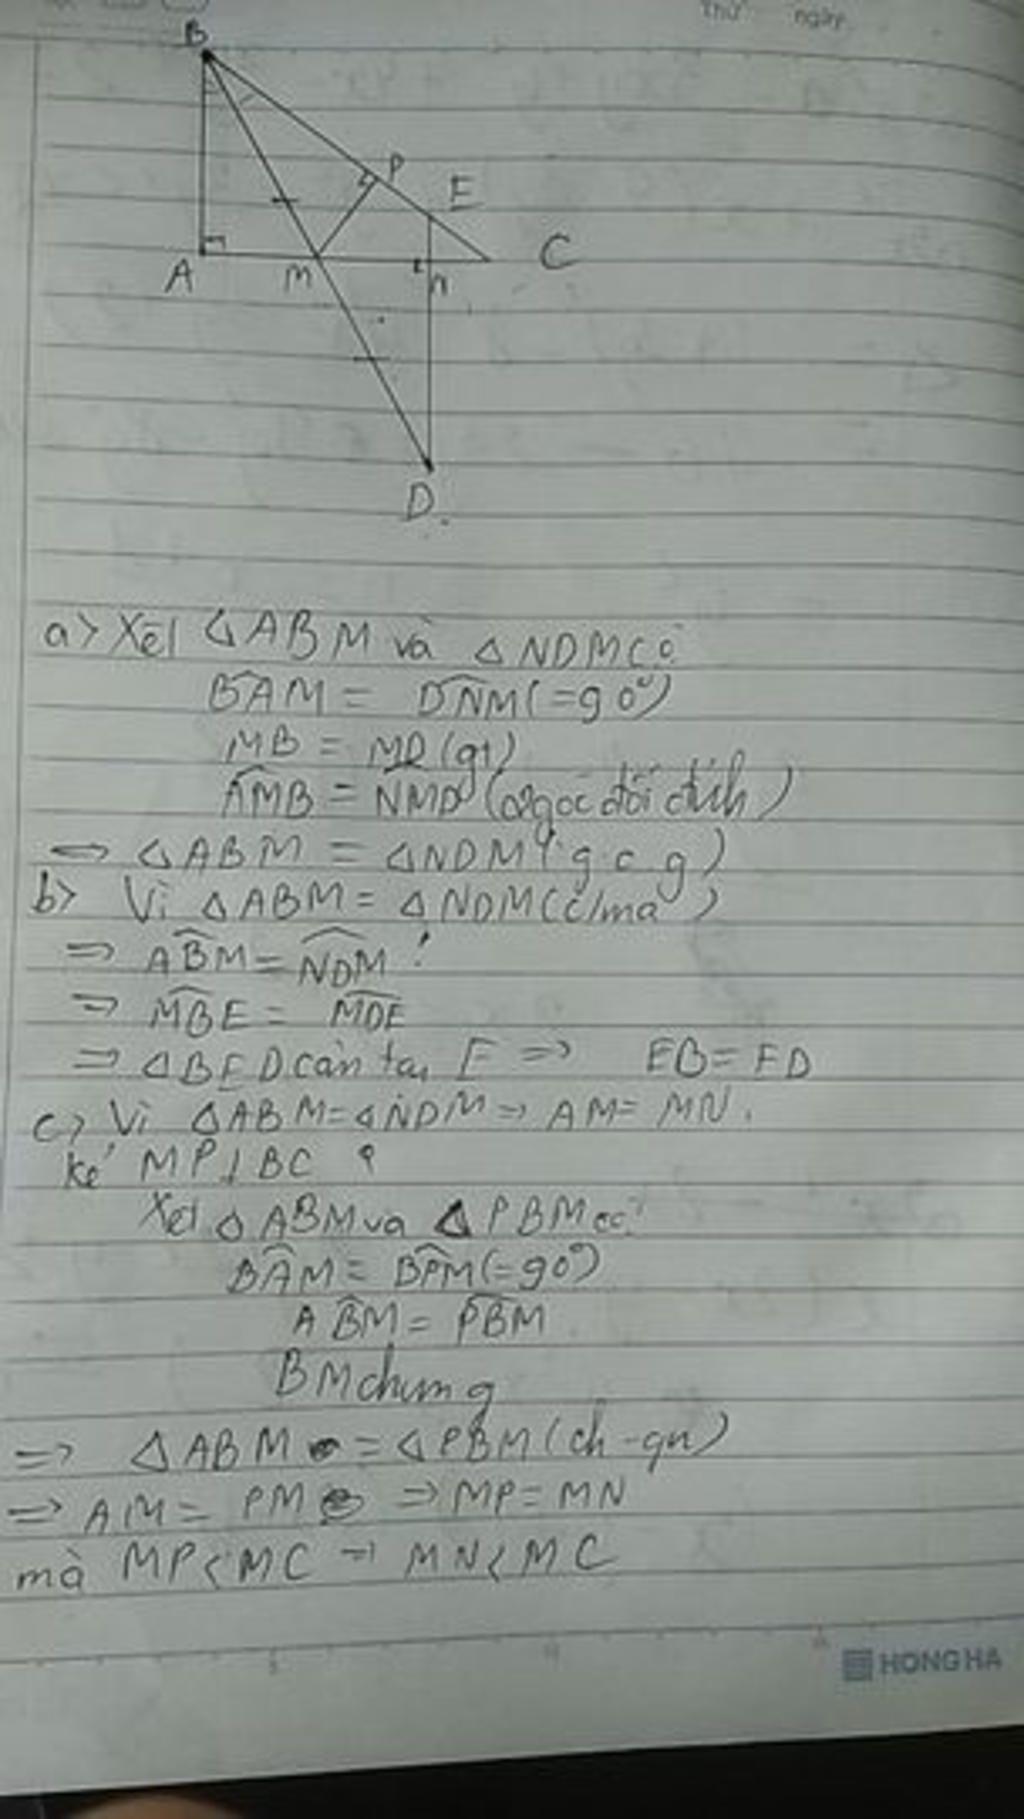 Thứ ngày
B
P
E
A M n C
D.
a> Xét △ABM và △NDM có
BAM = DNM (=90°)
MB = MD (gt)
AMB = NMD (2 góc đối đỉnh)
=> △ABM = △NDM (g.c.g)
b> Vì △ABM = △NDM (c/ma)
=> ABM = NDM
=> MBE = MDE
=> △BED cân tại E => EB = ED
c> Vì △ABM = △NDM => AM = MN.
kẻ MP⊥BC
Xét △ABM và △PBM có
BAM = BPM (=90°)
ABM = PBM
BM chung
=> △ABM = △PBM (ch-gn)
=> AM = PM => MP = MN
mà MP < MC => MN < MC
HONG HA